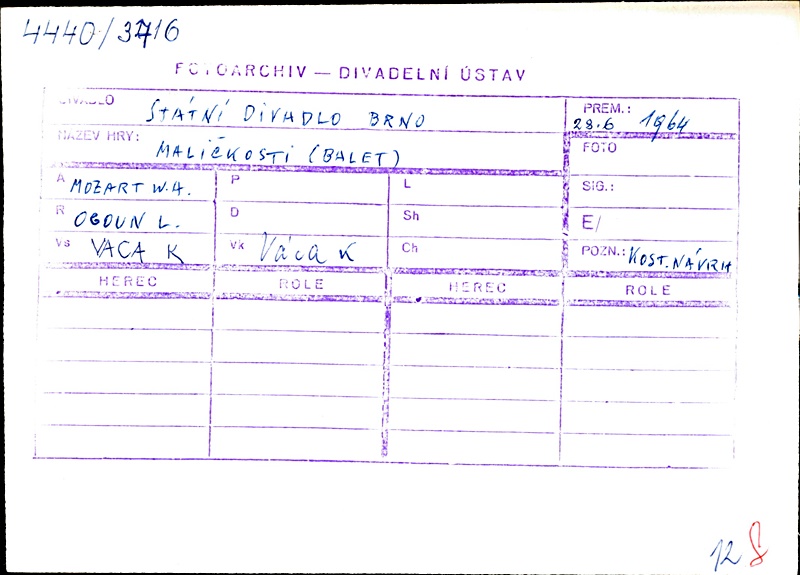 4440/3716
FOTOARCHIV — DIVADELNÍ ÚSTAV
DIVADLO STÁTNÍ DIVADLO BRNO
PREM.: 28.6 1964
NÁZEV HRY: MALIČKOSTI (BALET)
FOTO
A MOZART W.A. P L SIG.:
R OGOUN L. D Sh E/
Vs VACA K Vk Váca K Ch POZN.: KOST. NÁVRH
HEREC ROLE HEREC ROLE
12 8